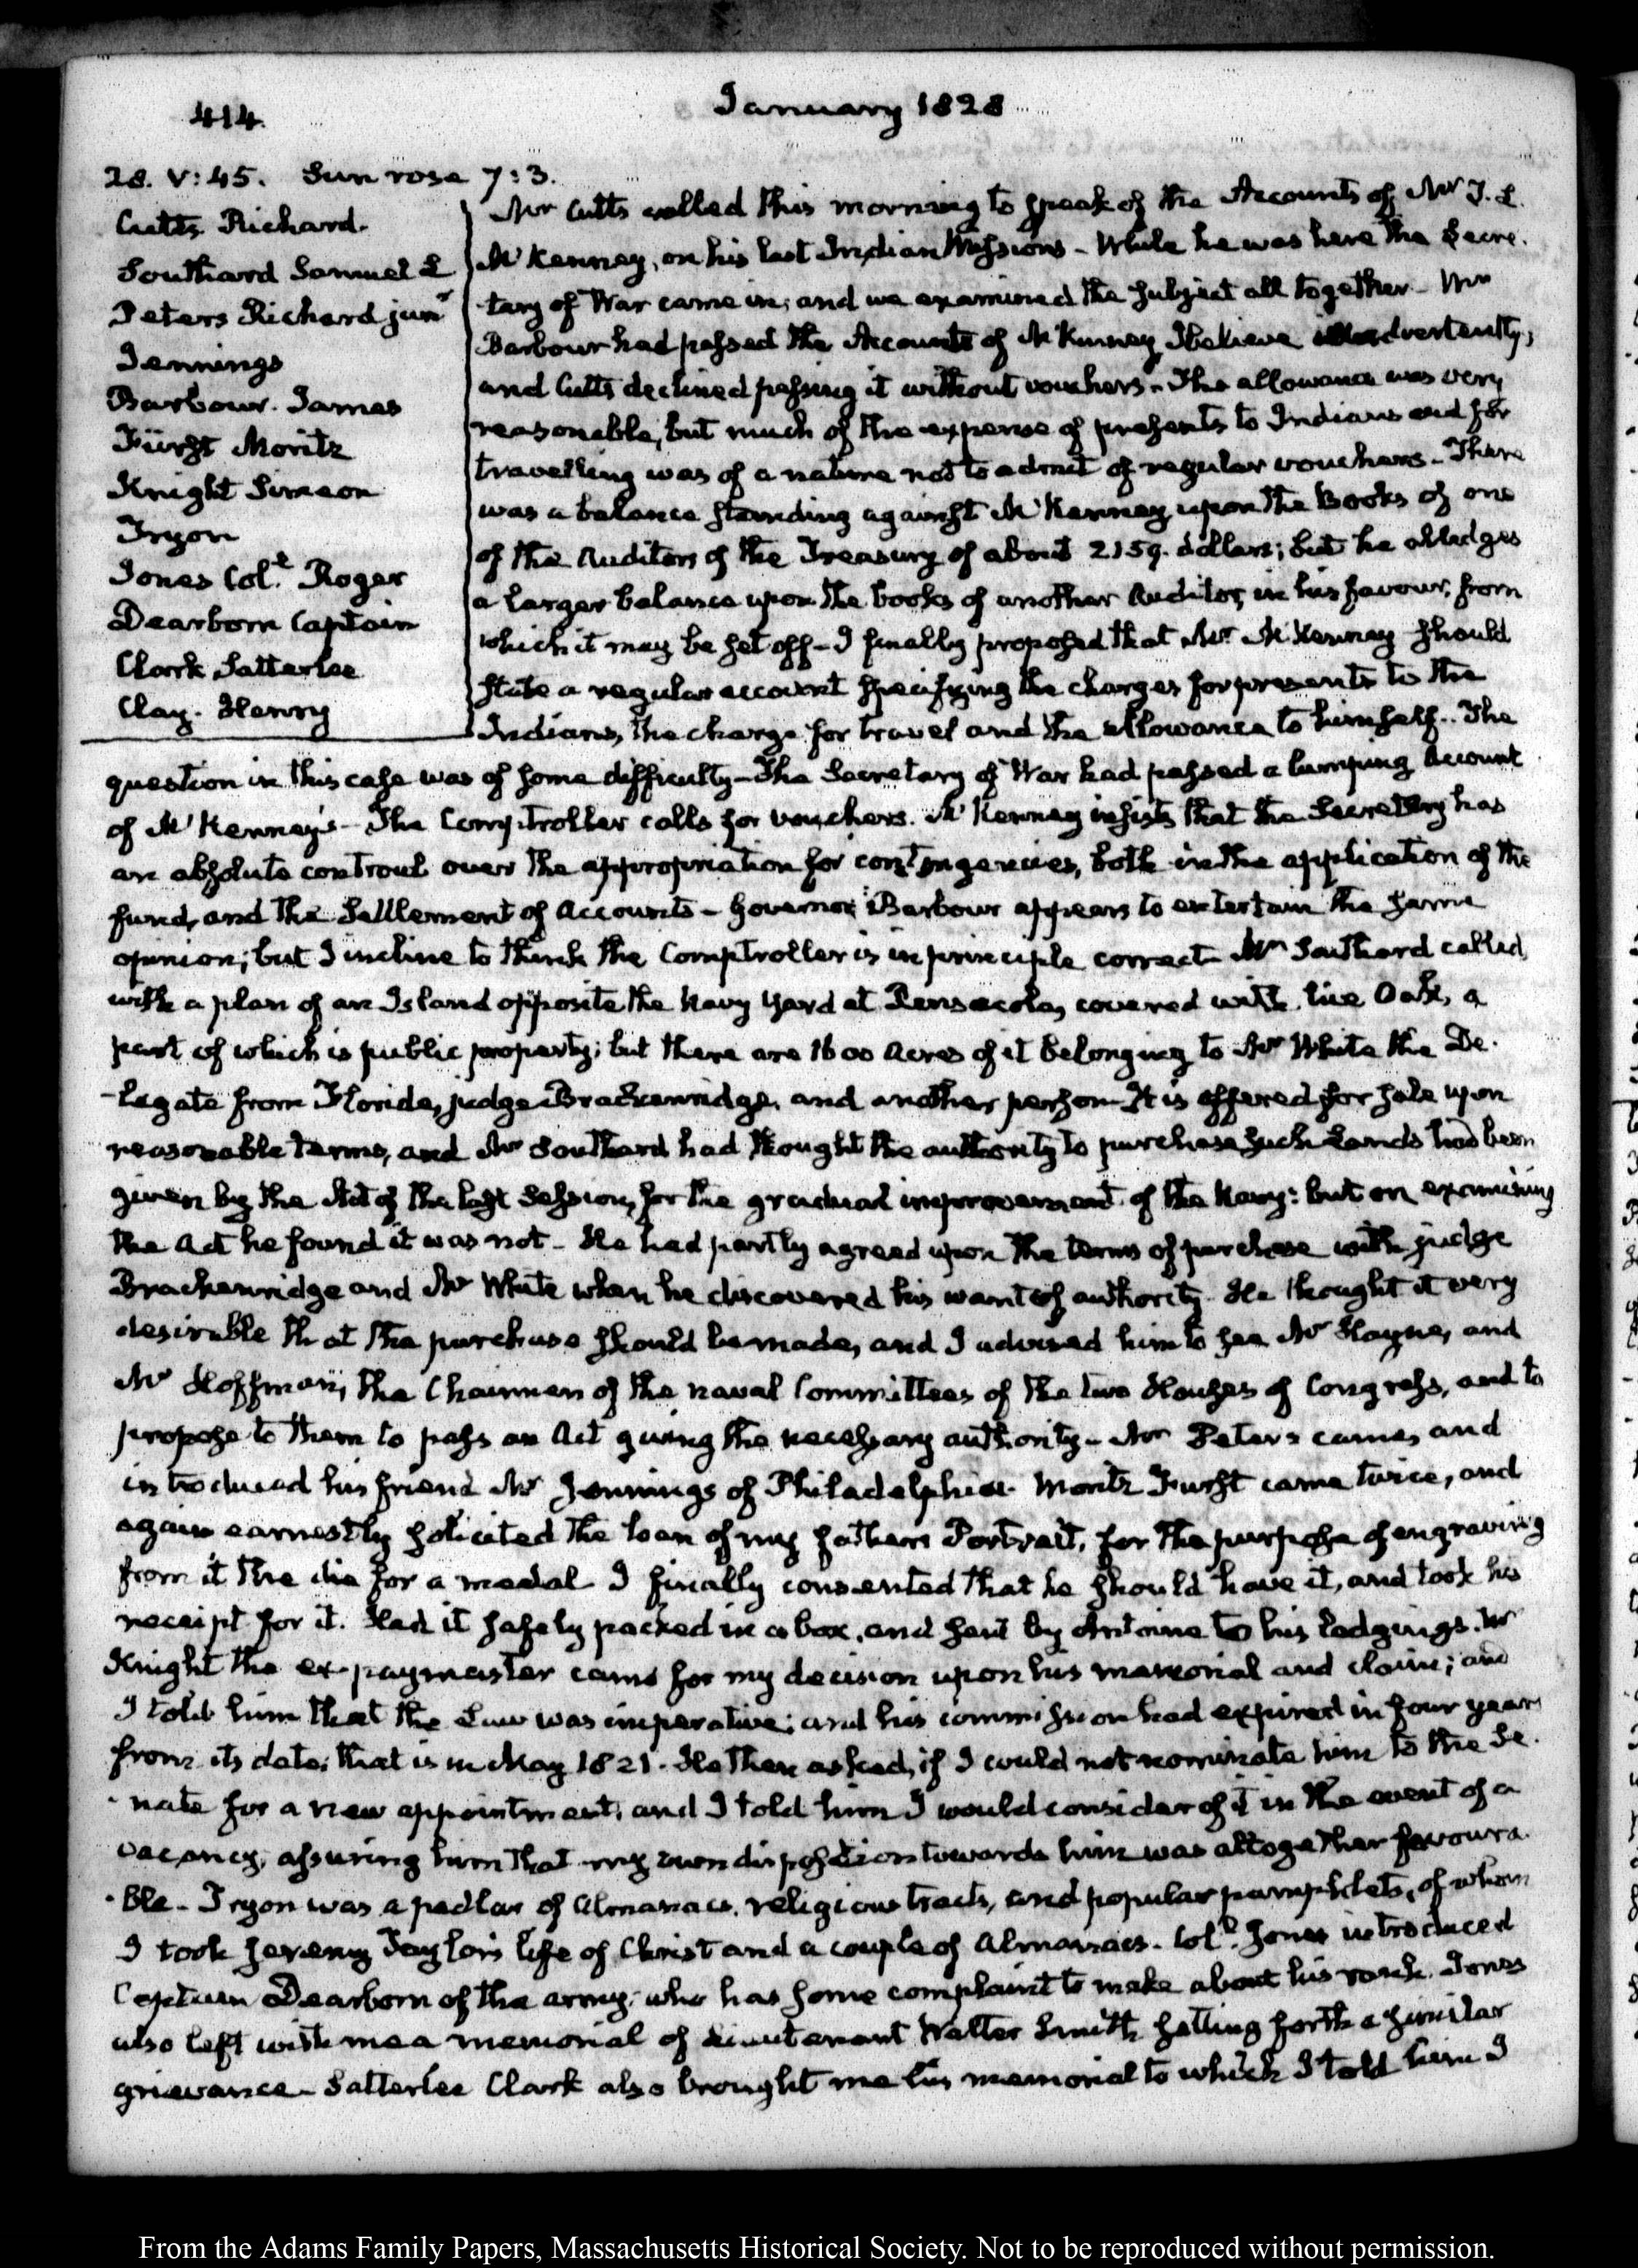 414.
January 1828
28. V:45. Sun rose 7:3.
Cutts Richard.
Southard Samuel L
Peters Richard junr
Jennings
Barbour. James
Fürst Moritz
Knight Simeon
Tryon
Jones Colo. Roger
Dearborn Captain
Clark Satterlee
Clay. Henry
Mr Cutts called this morning to speak of the Accounts of Mr T. L.
McKenney, on his last Indian Missions – While he was here the Secre-
tary of War came in; and we examined the subject all together – Mr
Barbour had passed the Accounts of McKenney I believe inadvertently;
and Cutts declined passing it without vouchers – The allowance was very
reasonable, but much of the expense of presents to Indians and for
travelling was of a nature not to admit of regular vouchers – There
was a balance standing against McKenney upon the Books of one
of the Auditors of the Treasury of about 2159. dollars; but he alledges
a larger balance upon the books of another Auditor, in his favour, from
which it may be set off – I finally proposed that Mr McKenney should
state a regular account specifying the charges for presents to the
Indians, the charge for travel and the allowance to himself.. The
question in this case was of some difficulty – The Secretary of War had passed a lumping Account
of McKenney's – The Comptroller calls for vouchers. McKenney insists that the Secretary has
an absolute controul over the appropriation for contingencies, both in the application of the
fund, and the Settlement of Accounts – Governor Barbour appears to entertain the same
opinion; but I incline to think the Comptroller is in principle correct – Mr Southard called,
with a plan of an Island opposite the Navy Yard at Pensacola, covered with live Oak, a
part of which is public property; but there are 1600 Acres of it belonging to Mr White the De-
-legate from Florida, judge Brackenridge, and another person – It is offered for sale upon
reasonable terms, and Mr Southard had thought the authority to purchase such Lands had been
given by the Act of the last Session, for the gradual improvement of the Navy: but on examining
the Act he found it was not – He had partly agreed upon the terms of purchase with judge
Brackenridge and Mr White when he discovered his want of authority – He thought it very
desirable that the purchase should be made, and I advised him to see Mr Hayne, and
Mr Hoffman, the Chairmen of the naval Committees of the two Houses of Congress, and to
propose to them to pass an Act giving the necessary authority – Mr Peters came, and
introduced his friend Mr Jennings of Philadelphia. Moritz Furst came twice, and
again earnestly solicited the loan of my father's Portrait, for the purpose of engraving
from it the die for a medal – I finally consented that he should have it, and took his
receipt for it. Had it safely packed in a box, and sent by Antoine to his lodgings. Mr
Knight the ex-paymaster came for my decision upon his memorial and claim; and
I told him that the Law was imperative; and his commission had expired in four years
from its date; that is in May 1821. He then asked, if I could not nominate him to the Se-
-nate for a new appointment; and I told him I would consider of it in the event of a
vacancy; assuring him that my own disposition towards him was altogether favoura-
-ble – Tryon was a pedlar of Almanacs, religious tracts, and popular pamphlets, of whom
I took Jeremy Taylor's life of Christ and a couple of Almanacs. Colo. Jones introduced
Captain Dearborn of the army; who has some complaint to make about his rank. Jones
also left with me a memorial of Lieutenant Walter Smith setting forth a similar
grievance – Satterlee Clark also brought me his memorial to which I told him I
From the Adams Family Papers, Massachusetts Historical Society. Not to be reproduced without permission.